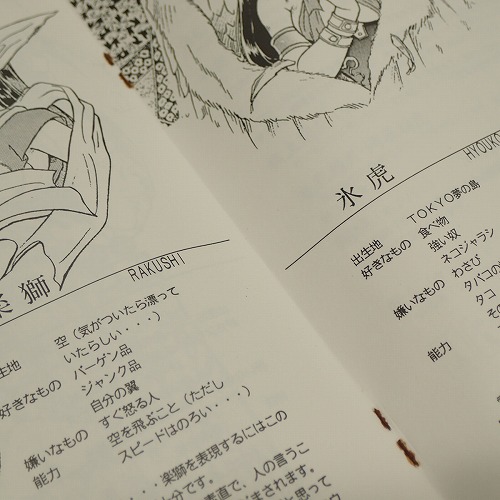 楽獅
RAKUSHI
生地 空（気がついたら漂って
いたらしい・・・）
好きなもの バーゲン品
ジャンク品
自分の翼
嫌いなもの すぐ怒る人
能力 空を飛ぶこと（ただし
スピードはのろい・・・）
・・・楽獅を表現するにはこの
分です。
素直で、人の言うこ
まされます。
思って
氷虎
HYOUKO
出生地 TOKYO夢の島
好きなもの 食べ物
強い奴
ネコジャラシ
嫌いなもの わさび
タバコの
タコ
能力 その